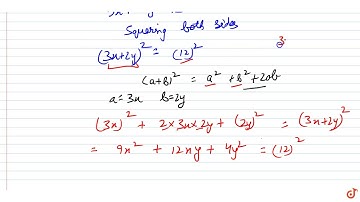 Squaring both sides
(3x+2y)² = (12)²
3
(a+b)² = a² + b² + 2ab
a=3x b=2y
(3x)² + 2×3x×2y + (2y)² = (3x+2y)²
= 9x² + 12xy + 4y² = (12)²